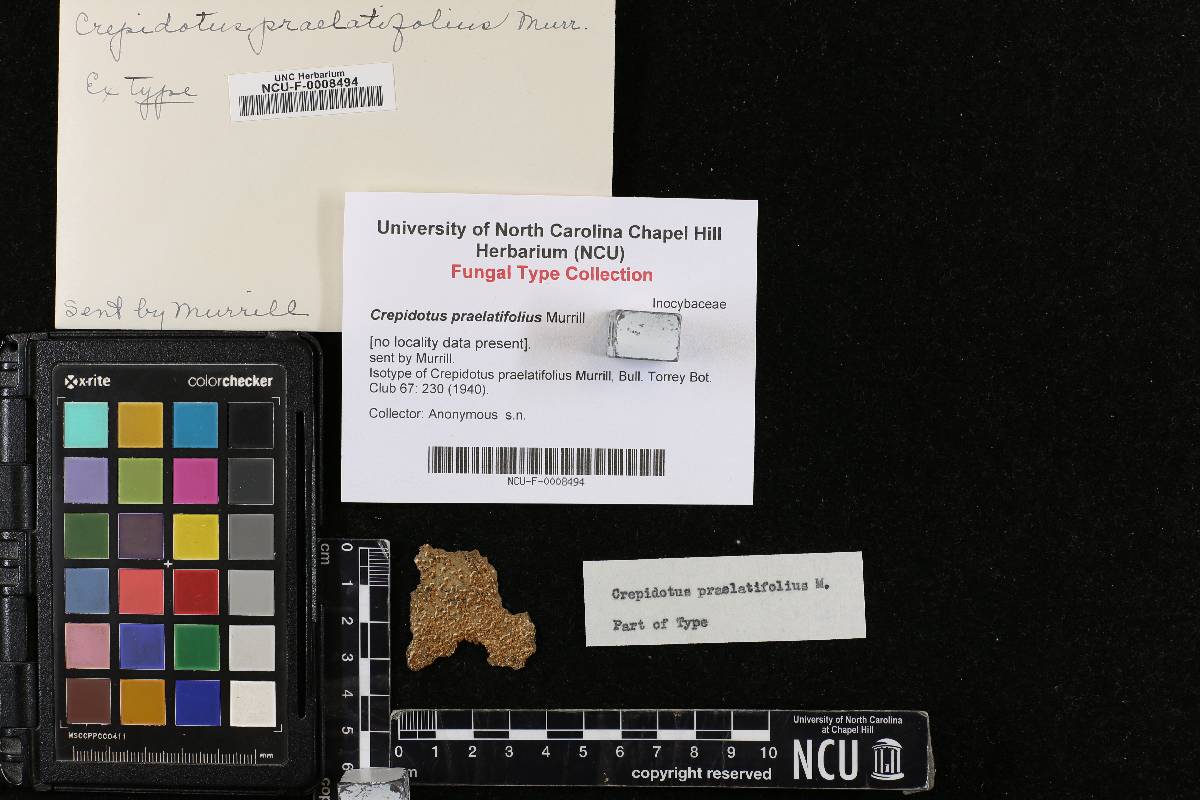 Crepidotus praelatifolius Murr.
Ex type
UNC Herbarium
NCU-F-0008494
sent by Murrill
University of North Carolina Chapel Hill
Herbarium (NCU)
Fungal Type Collection
Inocybaceae
Crepidotus praelatifolius Murrill
[no locality data present].
sent by Murrill.
Isotype of Crepidotus praelatifolius Murrill, Bull. Torrey Bot.
Club 67: 230 (1940).
Collector: Anonymous s.n.
NCU-F-0008494
x-rite colorchecker
MSCCPPCC0411
mm
cm
0
1
2
3
4
5
6
Crepidotus praelatifolius M.
Part of Type
0 1 2 3 4 5 6 7 8 9 10
copyright reserved
University of North Carolina
at Chapel Hill
NCU